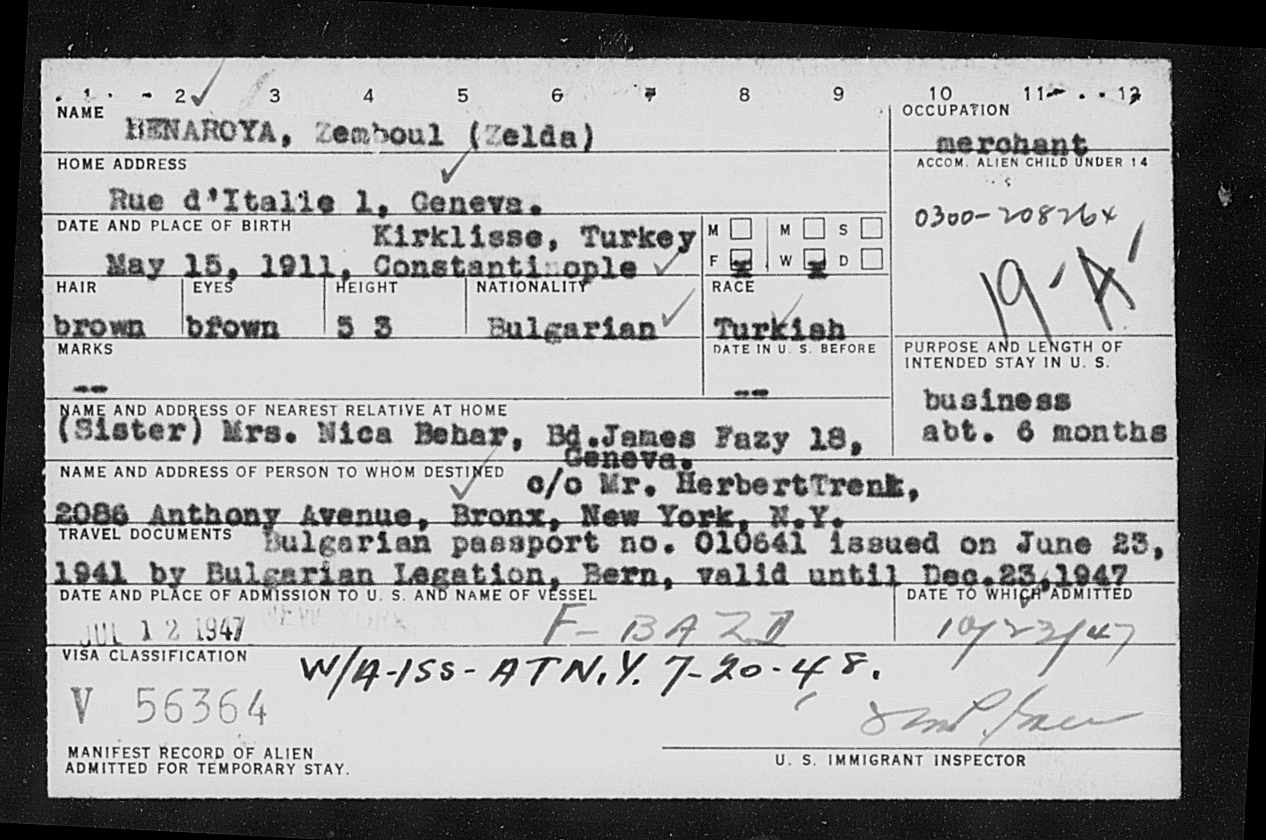 1 2 3 4 5 6 7 8 9 10 11 12
NAME
BENAROYA, Zemboul (Zelda)
OCCUPATION
merchant
HOME ADDRESS
Rue d'Italie 1, Geneva.
ACCOM. ALIEN CHILD UNDER 14
0300-208264
19-A'
DATE AND PLACE OF BIRTH
Kirklisse, Turkey
May 15, 1911, Constantinople
M M S
F x W x D
HAIR EYES HEIGHT NATIONALITY RACE
brown brown 5 3 Bulgarian Turkish
MARKS
--
DATE IN U. S. BEFORE
--
PURPOSE AND LENGTH OF
INTENDED STAY IN U. S.
business
abt. 6 months
NAME AND ADDRESS OF NEAREST RELATIVE AT HOME
(Sister) Mrs. Nica Behar, Bd.James Fazy 18,
Geneva.
NAME AND ADDRESS OF PERSON TO WHOM DESTINED
c/o Mr. HerbertTrenk,
2086 Anthony Avenue, Bronx, New York, N.Y.
TRAVEL DOCUMENTS
Bulgarian passport no. 010641 issued on June 23,
1941 by Bulgarian Legation, Bern, valid until Dec.23,1947
DATE AND PLACE OF ADMISSION TO U. S. AND NAME OF VESSEL
JUL 12 1947 NEW YORK F-BAZD
DATE TO WHICH ADMITTED
10/23/47
VISA CLASSIFICATION
W/A-ISS-AT N.Y. 7-20-48.
V 56364
MANIFEST RECORD OF ALIEN
ADMITTED FOR TEMPORARY STAY.
U. S. IMMIGRANT INSPECTOR